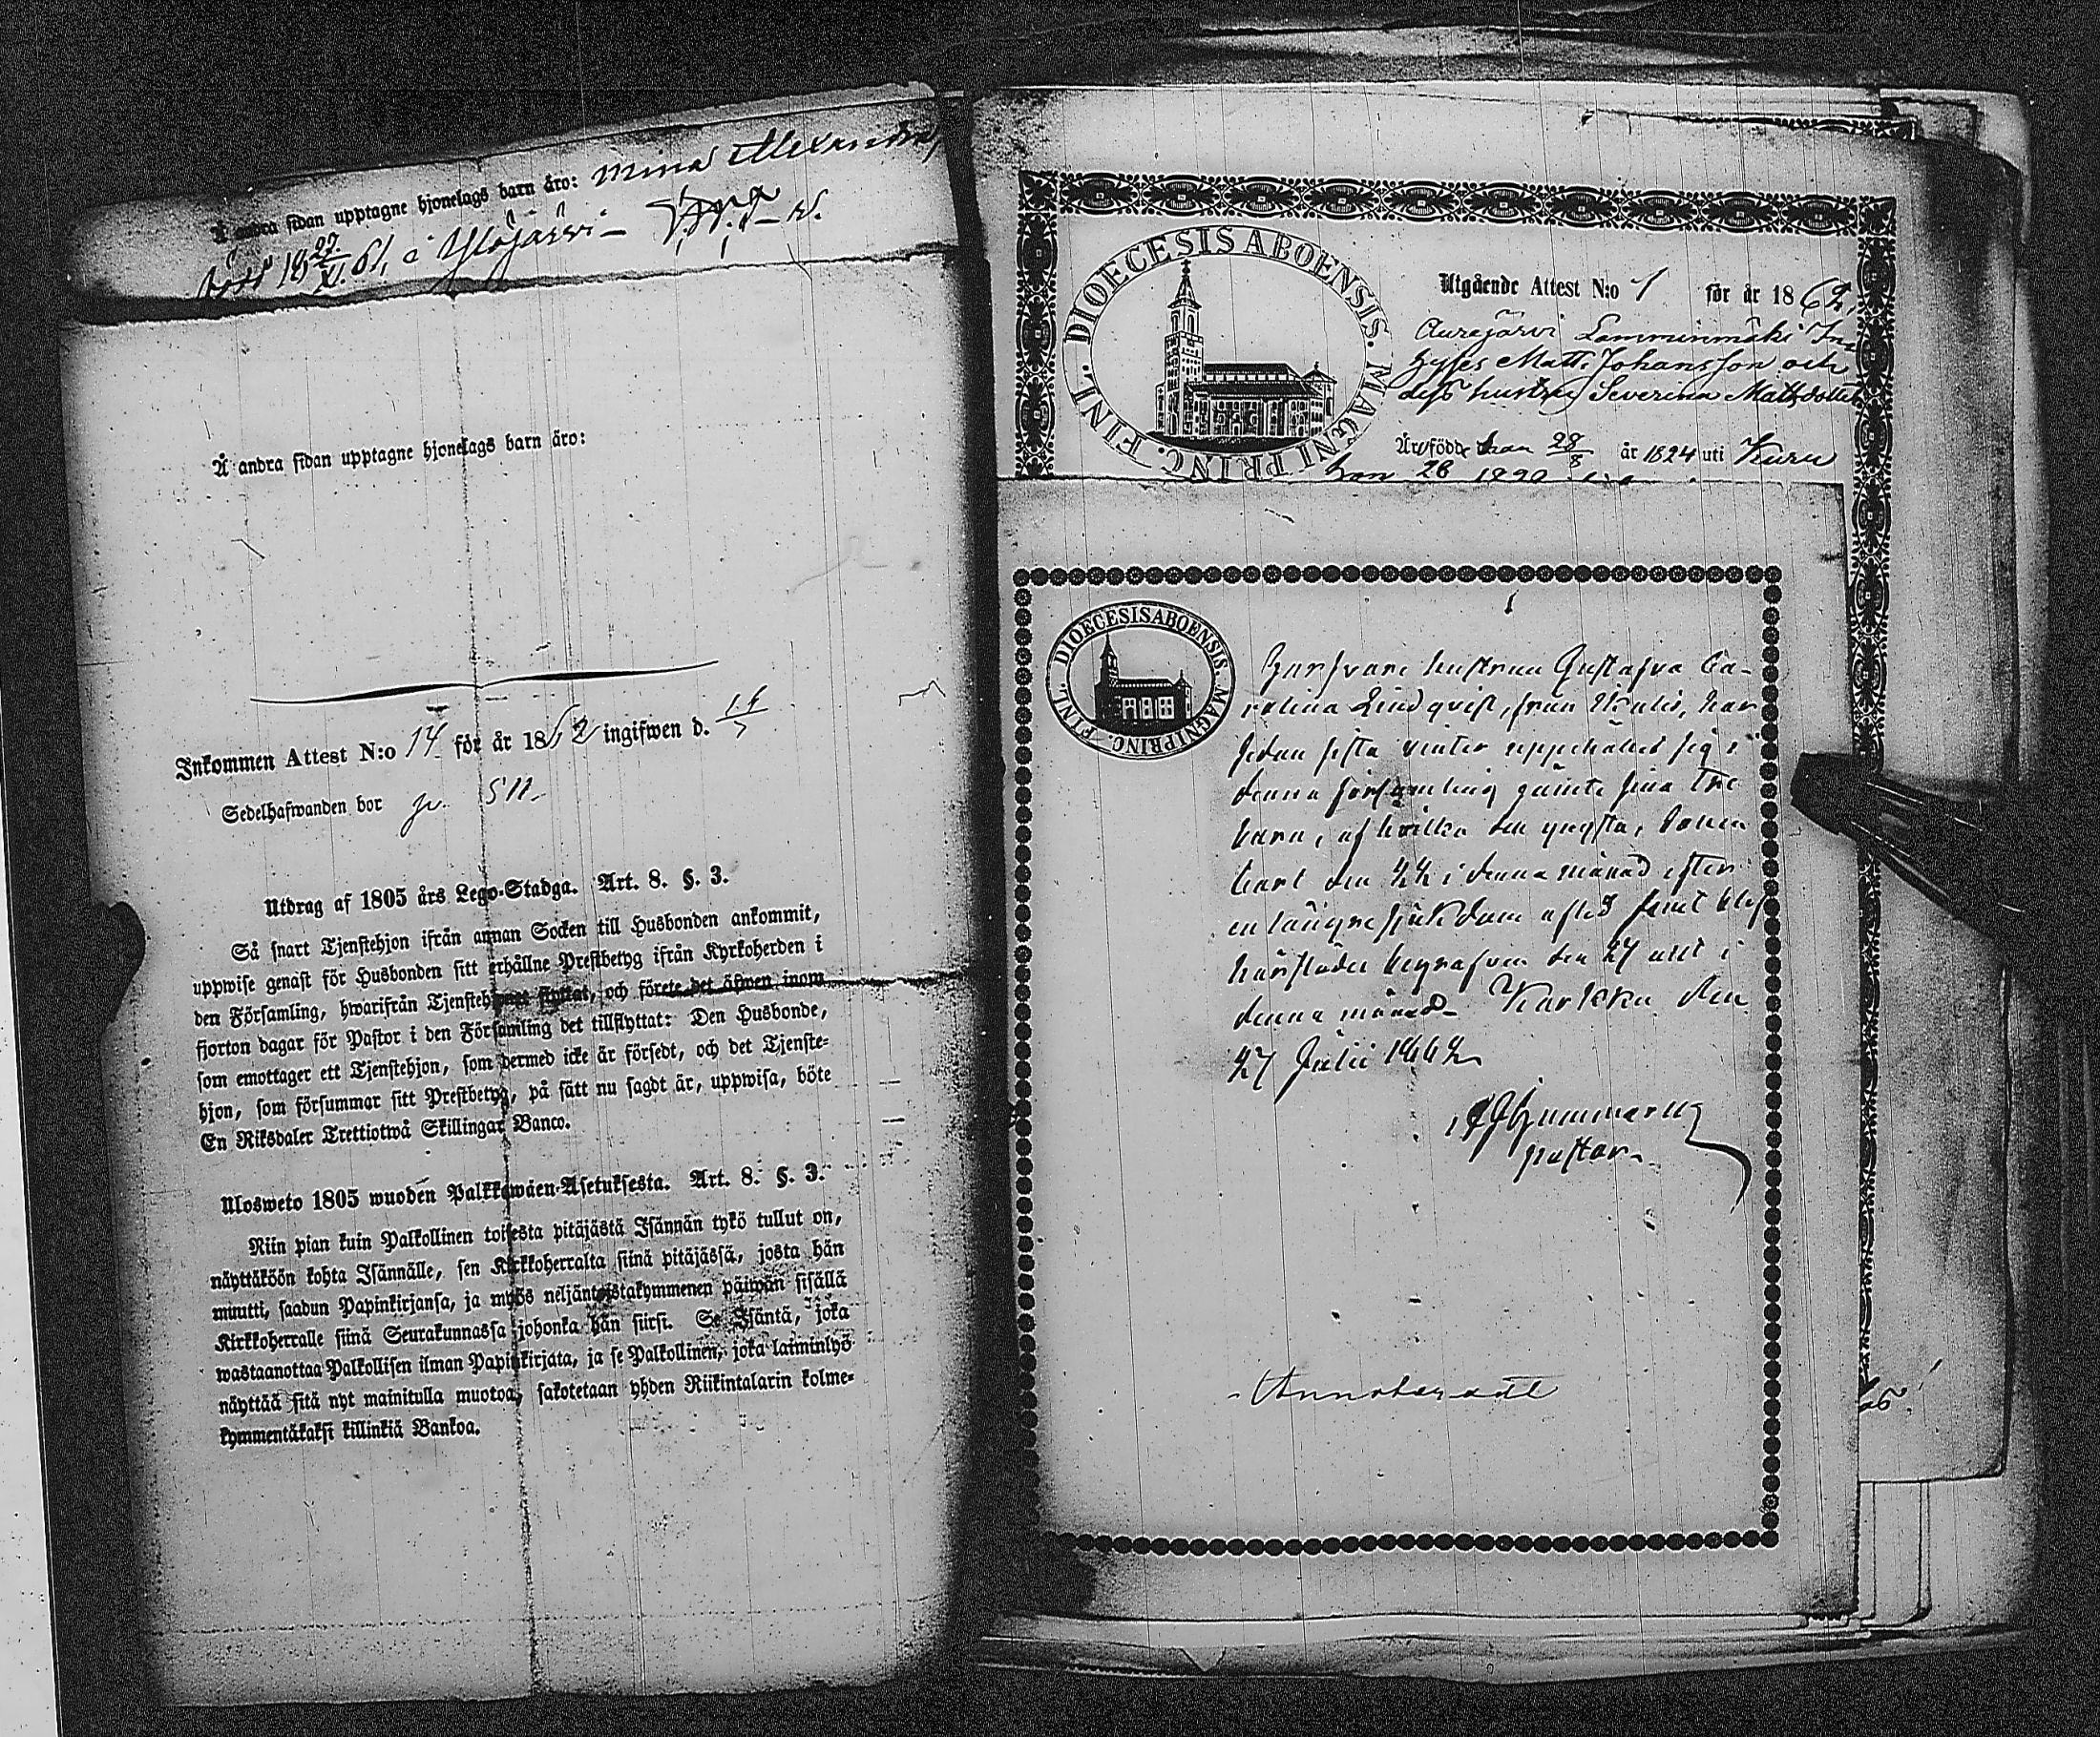 Å andra sidan upptagne hjonelags barn äro: Mina Alexandra,
född 18 27/XI. 61, i Ylöjärvi –
Å andra sidan upptagne hjonelags barn äro:
Inkommen Attest N:o 14 för år 1862 ingifwen d.
Sedelhafwanden bor
Utdrag af 1805 års Lego-Stadga. Art. 8. §. 3.
Så snart Tjenstehjon ifrån annan Socken till Husbonden ankommit,
uppwise genast för Husbonden sitt erhållne Prestbetyg ifrån Kyrkoherden i
den Församling, hwarifrån Tjenstehjonet flyttat, och förete det äfwen inom
fjorton dagar för Pastor i den Församling det tillflyttat: Den Husbonde,
som emottager ett Tjenstehjon, som dermed icke är försedt, och det Tjenste-
hjon, som försummar sitt Prestbetyg, på sätt nu sagdt är, uppwisa, böte
En Riksdaler Trettiotwå Skillingar Banco.
Ulosweto 1805 wuoden Palkkawäen-Asetuksesta. Art. 8. §. 3.
Niin pian kuin Palkollinen toisesta pitäjästä Isännän tykö tullut on,
näyttäköön kohta Isännälle, sen Kirkkoherralta siinä pitäjässä, josta hän
muutti, saadun Papinkirjansa, ja myös neljäntoistakymmenen päiwän sisällä
Kirkkoherralle siinä Seurakunnassa johonka hän siirsi. Se Isäntä, joka
wastaanottaa Palkollisen ilman Papinkirjata, ja se Palkollinen, joka laiminlyö
näyttää sitä nyt mainitulla muotoa, sakotetaan yhden Riikintalarin kolme-
kymmentäkaksi killinkiä Bankoa.
DIOECESIS ABOENSIS. MAGNI PRINC. FINL.
Utgående Attest N:o 1 för år 1862,
Aurejärvi Lamminmäki In-
hyses Matts Johansson och
dess hustru Severina Mattsdotter
Är född han 28/8 år 1824 uti Kuru
hon 26
DIOECESIS ABOENSIS. MAGNI PRINC. FINL.
hustrun Gustafva Ca-
rolina Lindqvist, från har
sedan sista vinter uppehållit sig i
denna församling jämte sina tre
barn, af hvilka den yngsta, sonen
Carl den 22 i denna månad efter
en längre sjukdom afled samt blef
härstädes begrafven den 27 uti i
denna månad. Karkku den
27 Julii 1862
Gummerus
pastor.